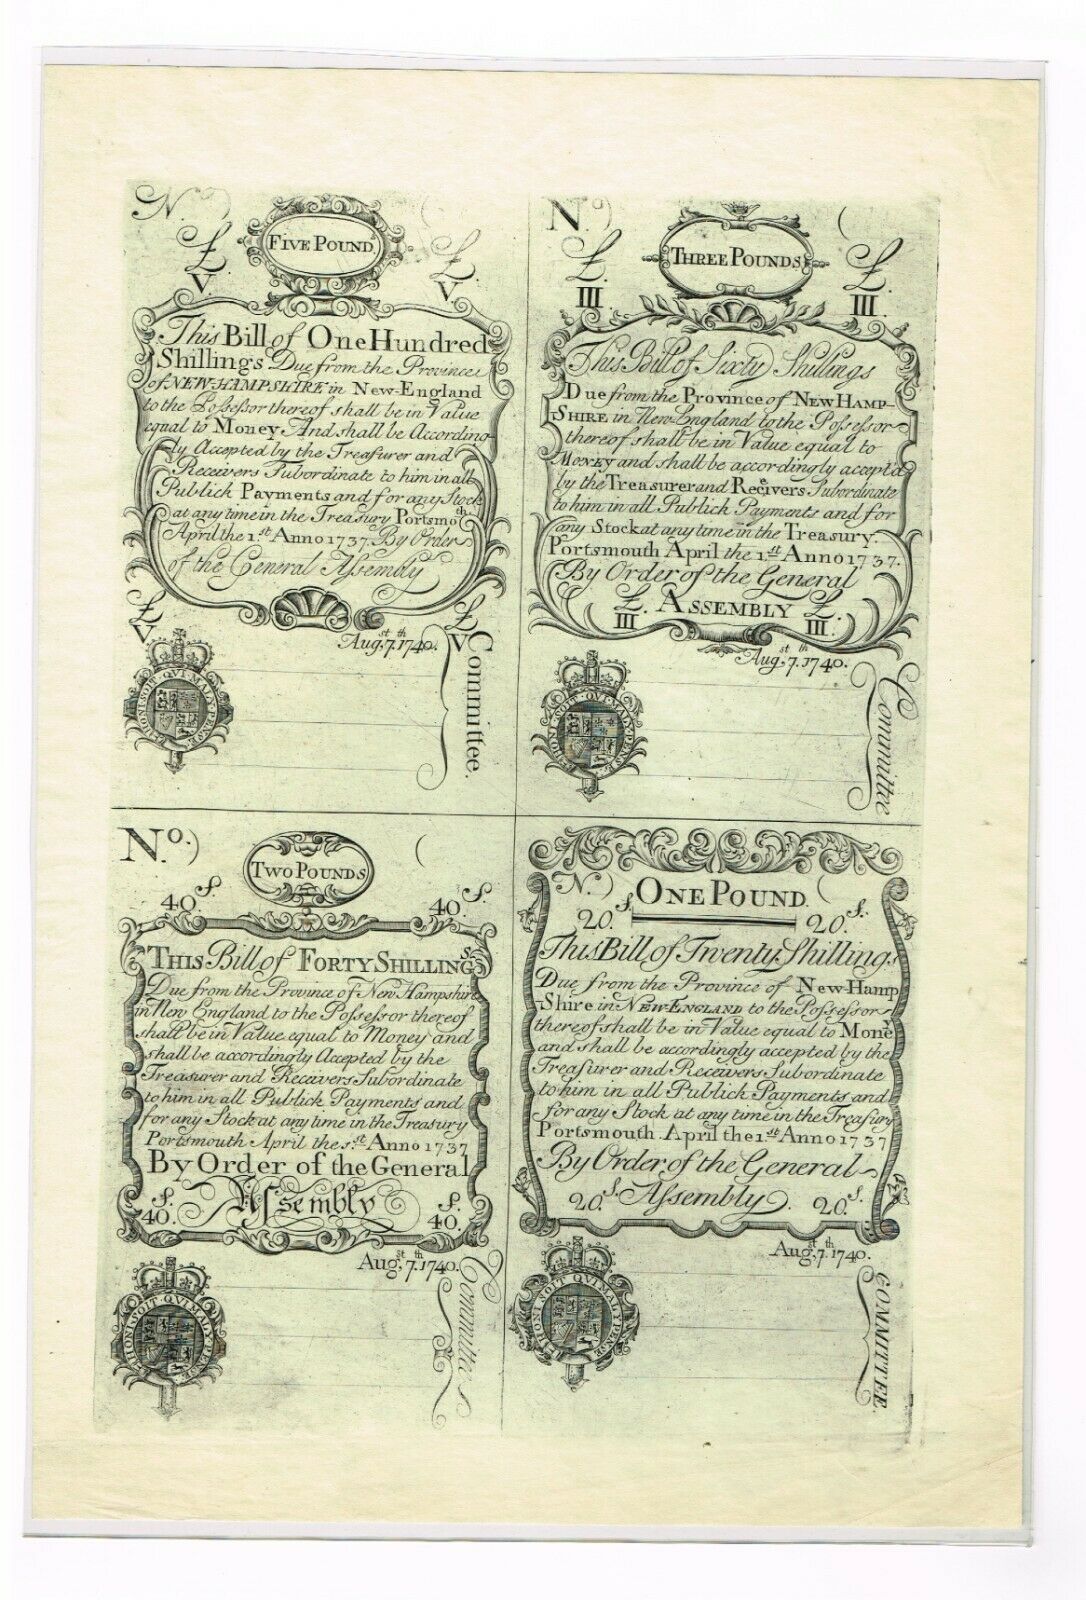 N.
FIVE POUND
£ £
V. V.
This Bill of One Hundred
Shillings Due from the Province
of NEW-HAMPSHIRE in New-England
to the Possessor thereof shall be in Value
equal to Money And shall be According-
ly Accepted by the Treasurer and
Receivers Subordinate to him in all
Publick Payments and for any Stock
at any time in the Treasury Portsmoth
April the 1.st Anno 1737. By Order
of the General Assembly
£ £
V V
Augst, 7th. 1740.
Committee.
HONI·SOIT·QVI·MAL·Y·PENSE
N )
THREE POUNDS
£ £.
III III.
This Bill of Sixty Shillings
Due from the Province of NEW HAMP-
-SHIRE in New-England to the Possessor
thereof shall be in Value equal to
MONEY and shall be accordingly accepted
by the Treasurer and Receivers Subordinate
to him in all Publick Payments and for
any Stock at any time in the Treasury.
Portsmouth April the 1.st Anno 1737.
By Order of the General
£. ASSEMBLY £.
III III.
Augst, 7th. 1740.
Committee
HONI·SOIT·QVI·MAL·Y·PENSE
No. ) (
TWO POUNDS
40.S 40.S.
THIS Bill of FORTY SHILLINGS
Due from the Province of New Hampshire
in New England to the Possessor thereof
shall be in Value equal to Money and
shall be accordingly Accepted by the
Treasurer and Receivers Subordinate
to him in all Publick Payments and
for any Stock at any time in the Treasury
Portsmouth April the 1.st Anno 1737
By Order of the General
S. Assembly S.
40. 40.
Augst, 7th. 1740.
Committee
HONI·SOIT·QVI·MAL·Y·PENSE
N. ) ONE POUND. (
20.S. 20.S.
This Bill of Twenty Shillings
Due from the Province of New-Hamp
-Shire in NEW-ENGLAND to the Possessor
thereof shall be in Value equal to Money
and shall be accordingly accepted by the
Treasurer and Receivers Subordinate
to him in all Publick Payments and
for any Stock at any time in the Treasury
Portsmouth. April the 1st Anno 1737
By Order of the General
20.S Assembly. 20.S.
Augst, 7th. 1740.
COMMITTEE.
HONI SOIT QVI MAL Y PENSE